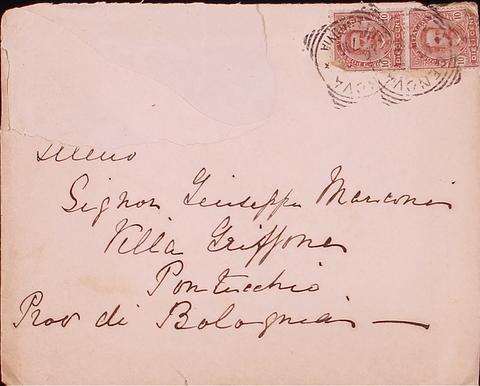 GENOVA FERROVIA
10 10
DIECI CENT.
Signor Giuseppe Marconi
Villa Griffone
Pontecchio
Prov di Bologna